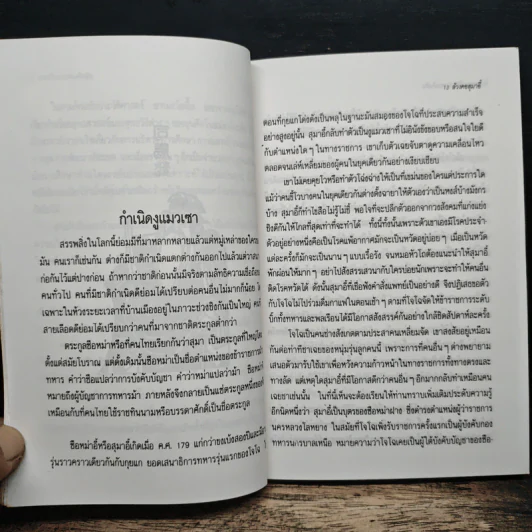 กำเนิดงูแมวเซา
สรรพสิ่งในโลกนี้ย่อมมีที่มาหลากหลายแล้วแต่หมู่เหล่าของใคร
มัน คนเราก็เช่นกัน ต่างก็มีชาติกำเนิดแตกต่างกันออกไปแล้วแต่วาสนา
ก่อกันไว้แต่ปางก่อน ถ้าหากว่าชาติก่อนนั้นมีจริงตามลัทธิความเชื่อถือ
คนทั่วไป คนที่มีชาติกำเนิดดีย่อมได้เปรียบต่อคนอื่นไม่มากก็น้อย
เฉพาะในห้วงระยะเวลาที่บ้านเมืองอยู่ในภาวะช่วงชิงกันเป็นใหญ่
สายเลือดดีย่อมได้เปรียบกว่าคนที่มาจากชาติตระกูลต่ำกว่า
ตระกูลซือหม่าหรือที่คนไทยเรียกกันว่าสุมา เป็นตระกูลที่ใหญ่โต
ตั้งแต่สมัยโบราณ แต่ตั้งเดิมนั้นซือหม่าเป็นชื่อตำแหน่งของข้าราชการ
ทหาร คำว่าซือแปลว่าการบังคับบัญชา คำว่าหม่าแปลว่าม้า
หมายถึงผู้บัญชาการทหารม้า ภายหลังจึงกลายเป็นแซ่ตระกูลหนึ่งของ
เหมือนกับที่คนไทยใช้ราชทินนามหรือบรรดาศักดิ์เป็นชื่อตระกูล
ซือหม่าอี้หรือสุมาอี้เกิดเมื่อ ค.ศ. 179 แก่กว่าขงเบ้งสองปีและ
รุ่นราวคราวเดียวกันกับกุยแก ยอดเสนาธิการทหารรุ่นแรกของโจโฉ
12 ตัวตนสุมาอี้
ตอนที่กุยแกโด่งดังเป็นพลุในฐานะมันสมองของโจโฉที่ประสบความสำเร็จ
อย่างสูงอยู่นั้น สุมาอี้กลับทำตัวเป็นงูแมวเซาที่ไม่ยินดียินร้ายหรือสนใจไยดี
กับตำแหน่งใดๆ ในทางราชการ เขาเก็บตัวเฉยจับตาดูความเคลื่อนไหว
ตลอดจนเล่ห์เหลี่ยมของผู้คนในยุคเดียวกันอย่างเงียบเชียบ
เขาไม่เคยคุยโวหรือทำตัวโฉ่งฉ่างให้เป็นที่เขม่นของใครแต่ประการใด
แม้ว่าคนชั่วบางคนในยุคเดียวกันต่างตั้งฉายาให้ตัวเองว่าเป็นหงส์บ้างมังกร
บ้าง สุมาอี้ก็ทำไขสือไม่รู้ไม่ชี้ พอใจที่จะปลีกตัวออกจากวงสังคมที่แก่งแย่ง
ชิงดีกันให้ไกลที่สุดเท่าที่จะทำได้ ทั้งนี้ทั้งนั้นเพราะตัวเขาเองมีโรคประจำ
ตัวอยู่อย่างหนึ่งคือเป็นโรคแพ้อากาศมักจะเป็นหวัดอยู่บ่อยๆ เมื่อเป็นหวัด
แต่ละครั้งก็มักจะเป็นนานๆ แบบเรื้อรัง จนหมอหัวโถต้องแนะนำให้สุมาอี้
พักผ่อนให้มากๆ อย่าไปสังสรรค์เสวนากับใครบ่อยนักเพราะจะทำให้คนอื่น
ติดโรคหวัดได้ ดังนั้นสุมาอี้ที่เชื่อฟังคำสั่งแพทย์เป็นอย่างดี จึงปฏิเสธขอตัว
กับโจโฉไม่ไปร่วมดื่มกาแฟตอนเช้าๆ ตามที่โจโฉจัดให้ข้าราชการระดับ
บิ๊กทั้งทหารและพลเรือนได้มีโอกาสสังสรรค์กันอย่างใกล้ชิดสัปดาห์ละครั้ง
โจโฉเป็นคนช่างสังเกตตามประสาคนเหลี่ยมจัด เขาสงสัยอยู่เหมือน
กันต่อท่าทีเขาเฉยของหนุ่มรุ่นลูกคนนี้ เพราะการที่คนอื่นๆ ต่างพยายาม
เสนอตัวมารับใช้เขาเพื่อหวังความก้าวหน้าในทางราชการทั้งทางตรงและ
ทางลัด แต่เหตุใดสุมาอี้ที่มีโอกาสดีกว่าคนอื่นๆ อีกมากกลับทำเหมือนคน
เฉยชาเช่นนั้น ในที่นี้เห็นจะต้องเรียนให้ท่านทราบเพิ่มเติมประดับความรู้
อีกนิดหนึ่งว่า สุมาอี้เป็นบุตรของซือหม่าฝาง ซึ่งดำรงตำแหน่งผู้ว่าราชการ
นครหลวงโลหยาง ในสมัยที่โจโฉเพิ่งรับราชการครั้งแรกเป็นผู้บังคับกอง
ทหารนครบาลเหนือ หมายความว่าโจโฉเคยเป็นผู้ใต้บังคับบัญชาของซือ-